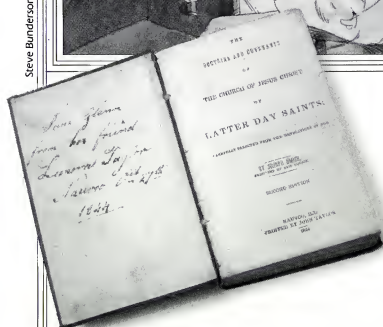 Steve Bunderson
Jane Glenn
from her friend
Leonora Taylor
Nauvoo
1844
THE
DOCTRINE AND COVENANTS
OF
THE CHURCH OF JESUS CHRIST
OF
LATTER DAY SAINTS;
CAREFULLY SELECTED FROM THE REVELATIONS OF GOD
BY JOSEPH SMITH,
SECOND EDITION
NAUVOO, ILL:
PRINTED BY JOHN TAYLOR
1844